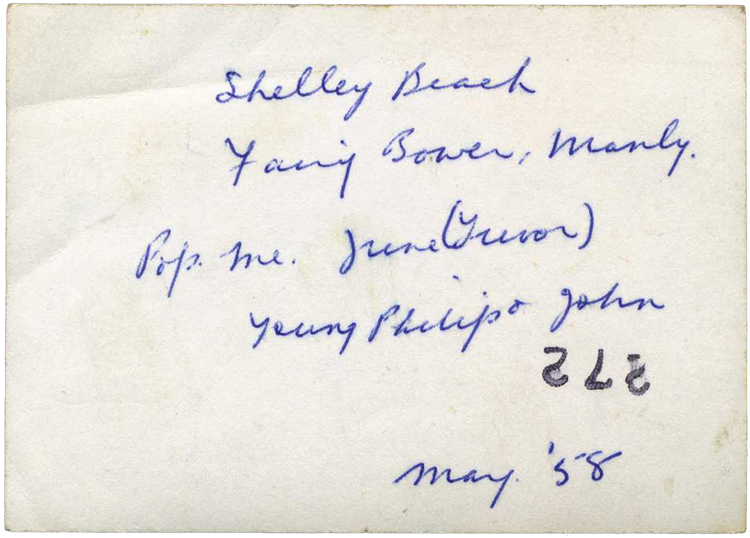 Shelley Beach
Fairy Bower, Manly.
Pop. Me. June (Trevor)
Young Philip & John
May. '58